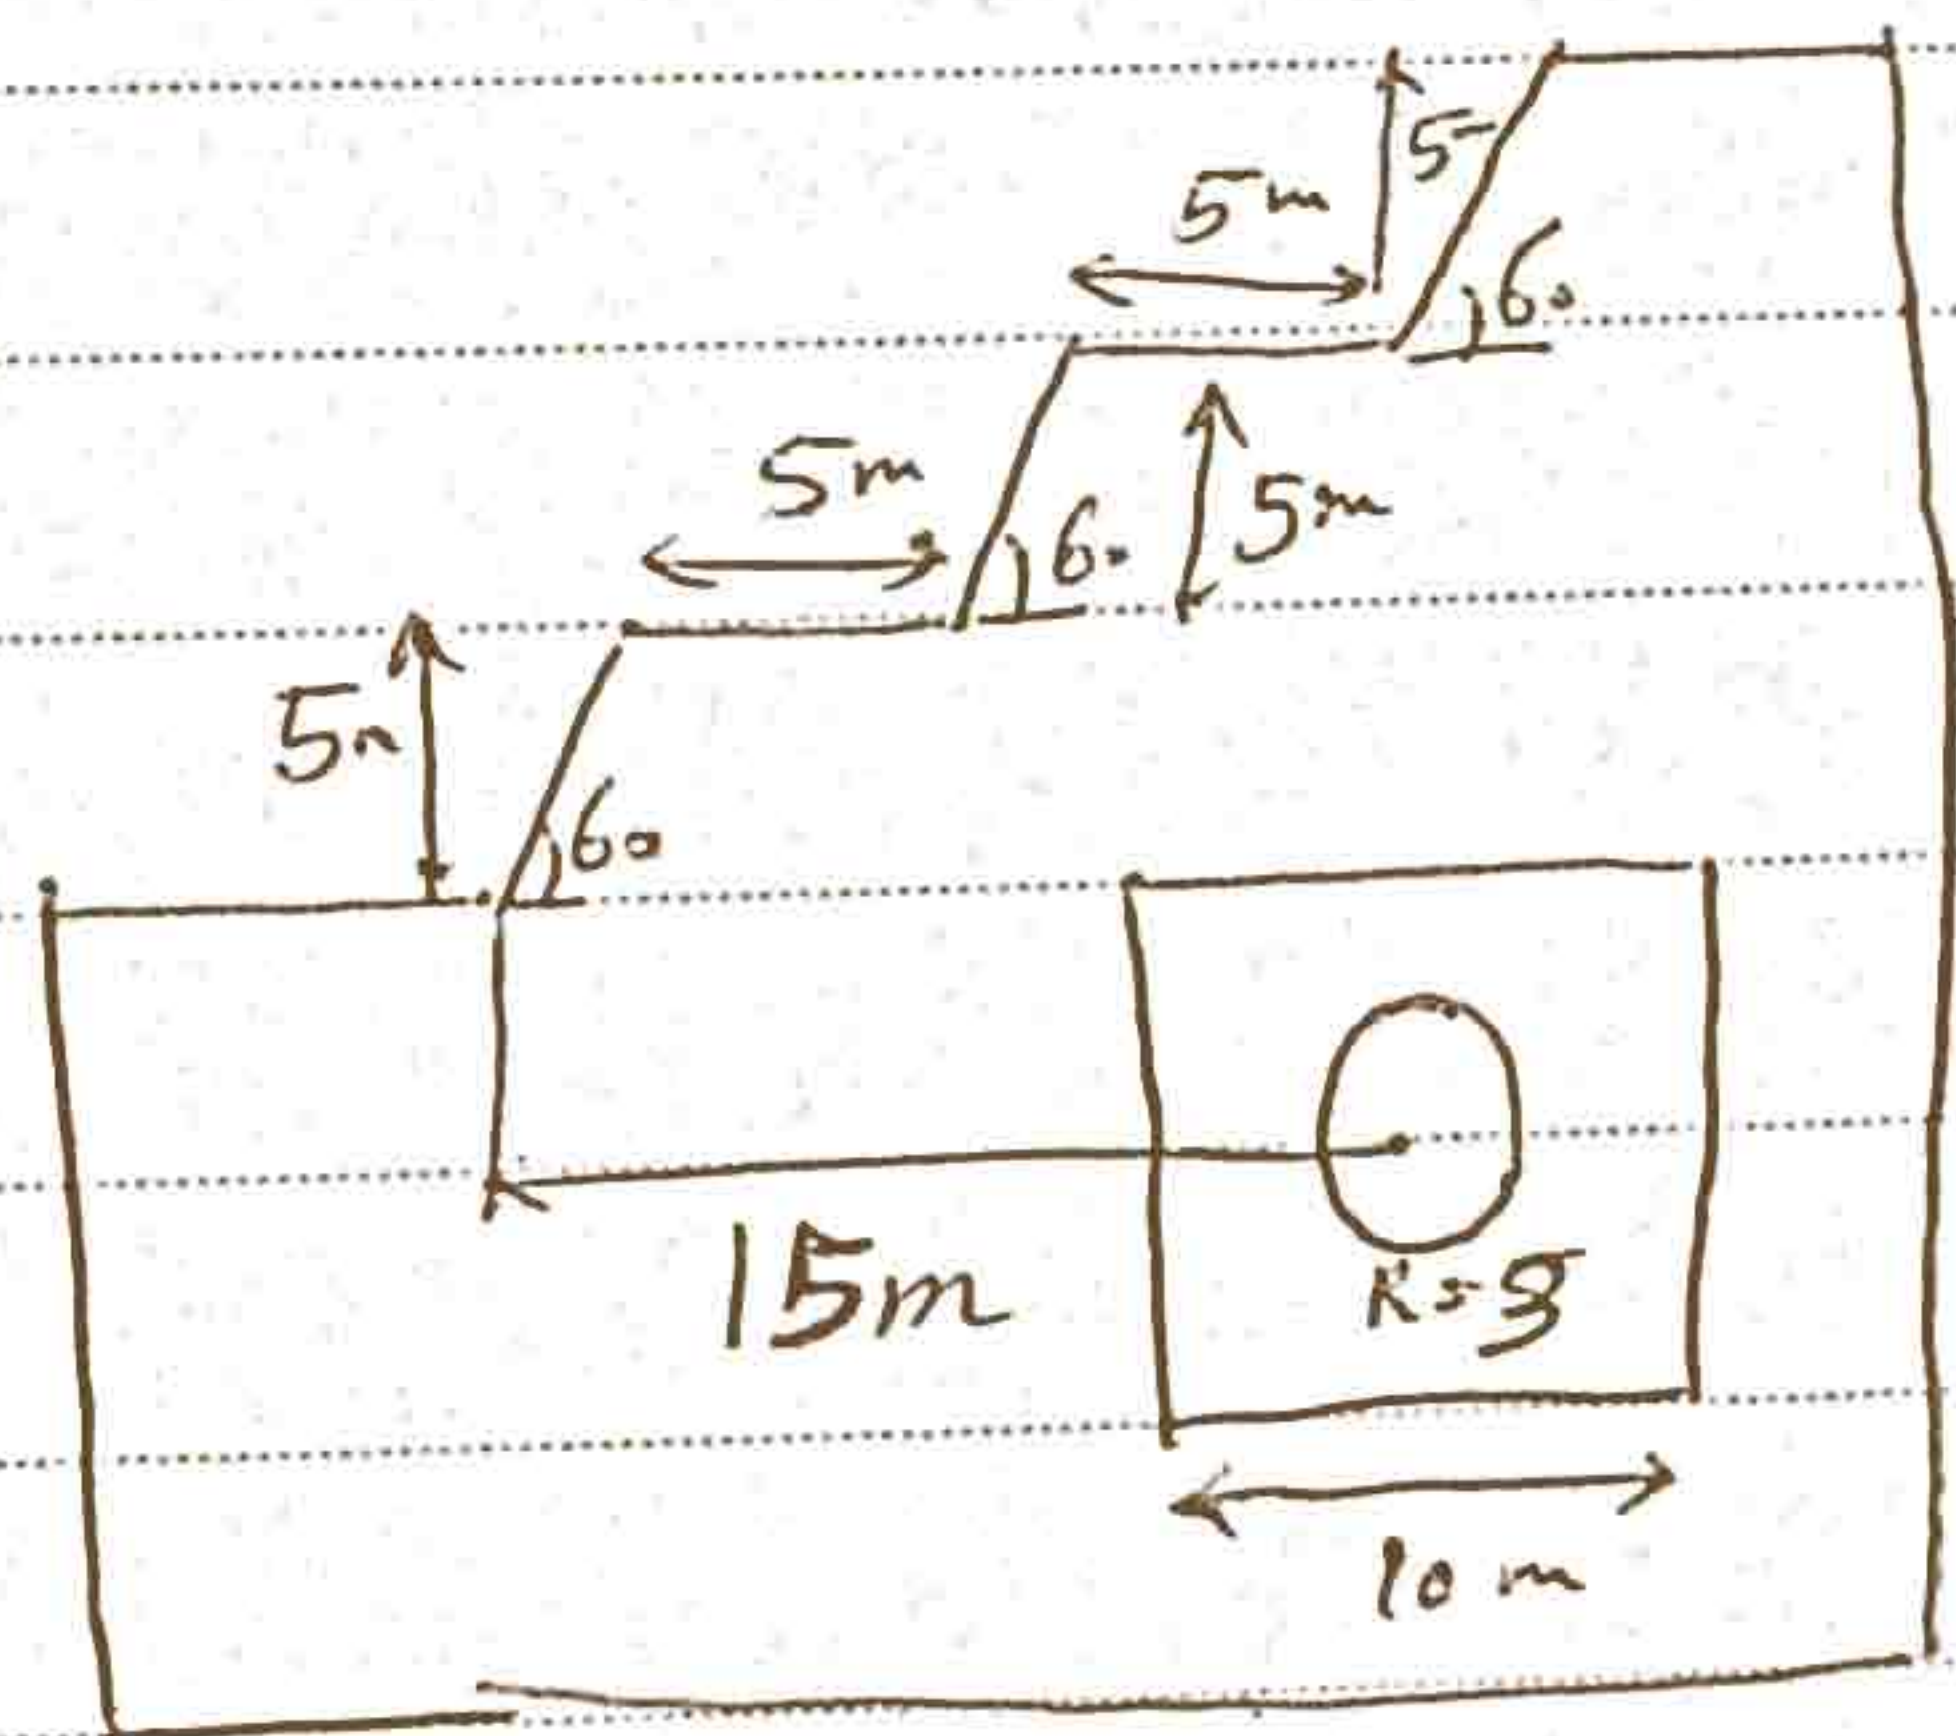 5
5m
60
5m
60
5m
5m
60
15m
10 m